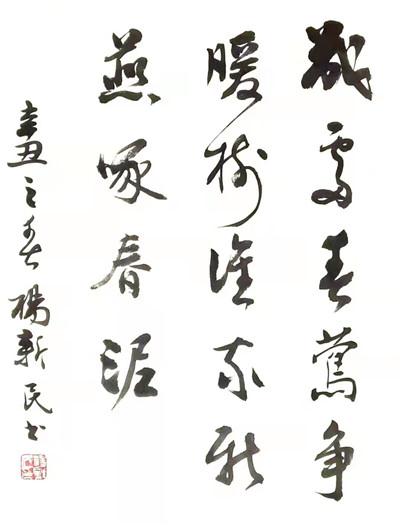 幾處早鶯争
暖樹誰家新
燕啄春泥
辛丑之春楊新民书